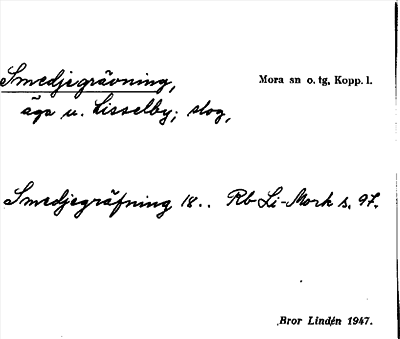 Smedjegrävning, Mora sn o. tg, Kopp. l.
äga u. Lisselby; slog,
Smedjegräfning 18.. Rb Li-Mork s. 97.
Bror Lindén 1947.